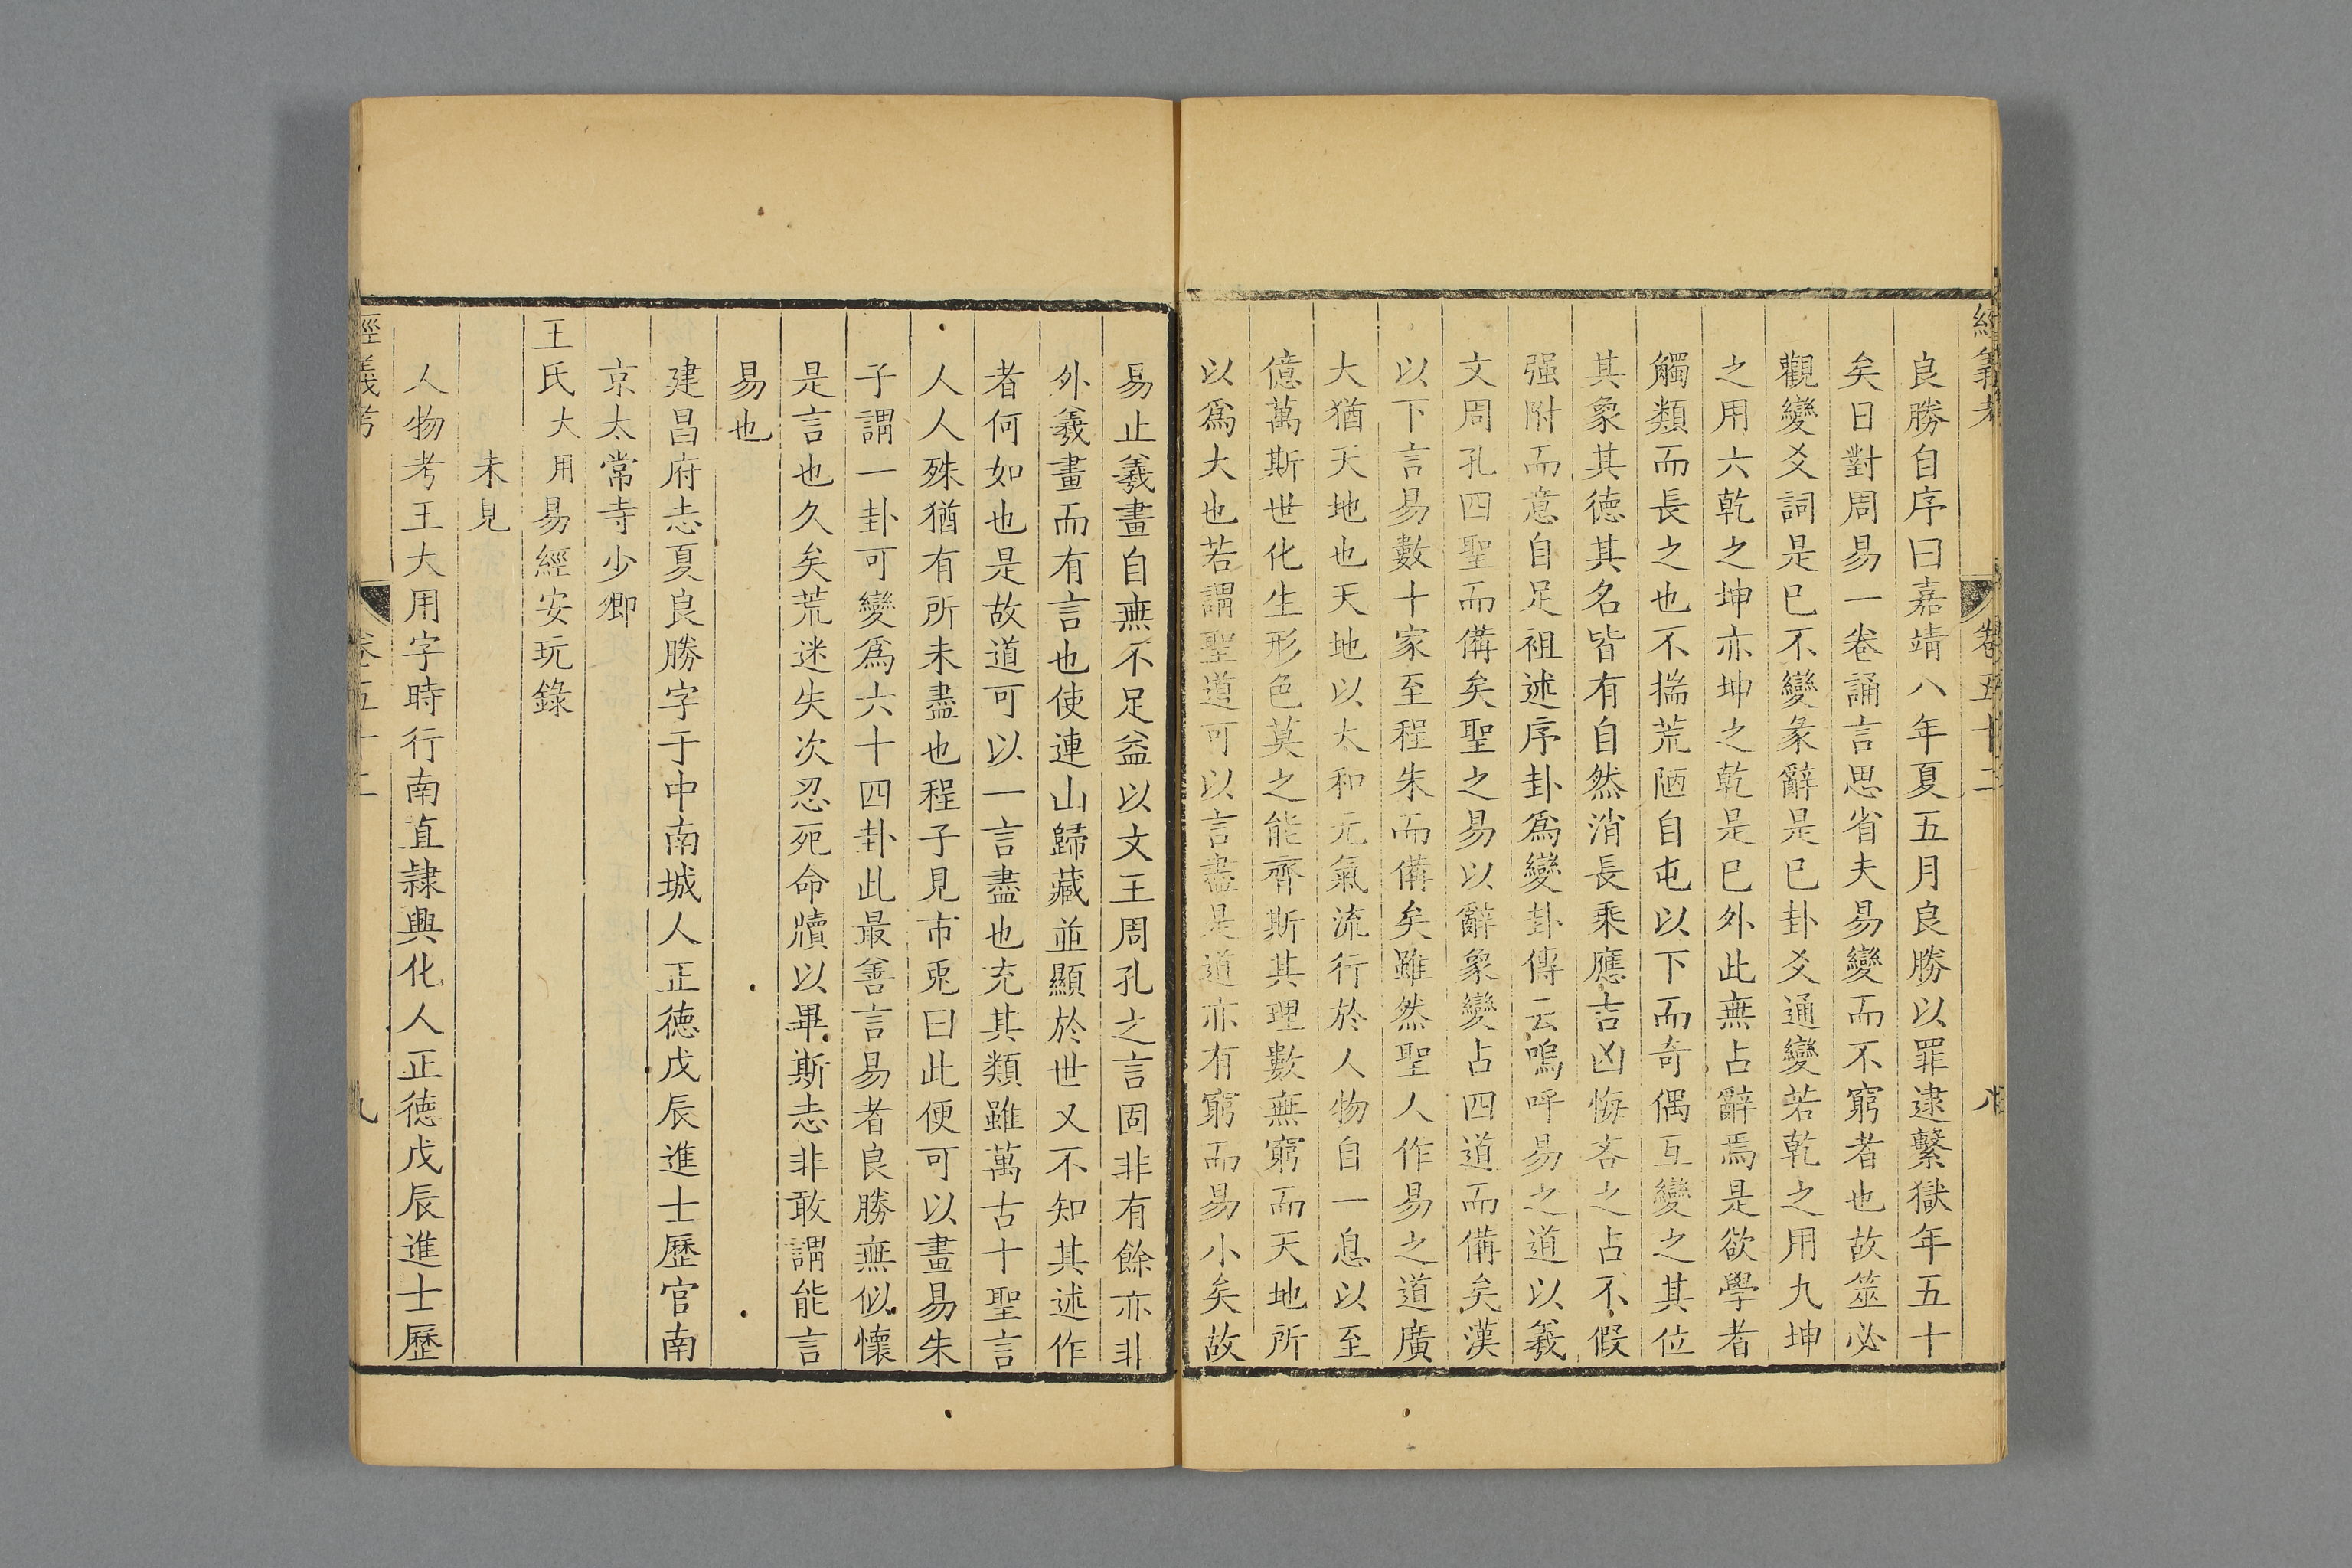 經義考 卷五十二 八
良勝自序曰嘉靖八年夏五月良勝以罪逮繫獄年五十
矣日對周易一卷誦言思省夫易變而不窮者也故筮必
觀變爻詞是已不變彖辭是已卦爻通變若乾之用九坤
之用六乾之坤亦坤之乾是已外此無占辭焉是欲學者
觸類而長之也不揣荒陋自屯以下而奇偶互變之其位
其象其德其名皆有自然消長乘應吉凶悔吝之占不假
强附而意自足祖述序卦爲變卦傳云嗚呼易之道以羲
文周孔四聖而備矣聖之易以辭象變占四道而備矣漢
以下言易數十家至程朱而備矣雖然聖人作易之道廣
大猶天地也天地以太和元氣流行於人物自一息以至
億萬斯世化生形色莫之能齊斯其理數無窮而天地所
以爲大也若謂聖道可以言盡是道亦有窮而易小矣故
易止羲畫自無不足益以文王周孔之言固非有餘亦非
外羲畫而有言也使連山歸藏並顯於世又不知其述作
者何如也是故道可以一言盡也充其類雖萬古十聖言
人人殊猶有所未盡也程子見市兎曰此便可以畫易朱
子謂一卦可變爲六十四卦此最善言易者良勝無似懷
是言也久矣荒迷失次忍死命牘以畢斯志非敢謂能言
易也
建昌府志夏良勝字于中南城人正德戊辰進士歷官南
京太常寺少卿
王氏大用易經安玩錄
未見
人物考王大用字時行南直隷興化人正德戊辰進士歷
經義考 卷五十二 九